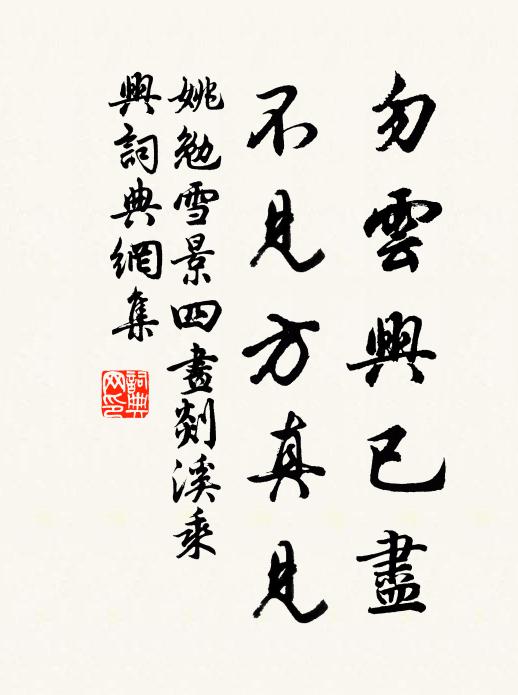 勿雲興已盡
不見方真見
姚勉雪景四畫剡溪乘
興詞典網集
詞典
网印